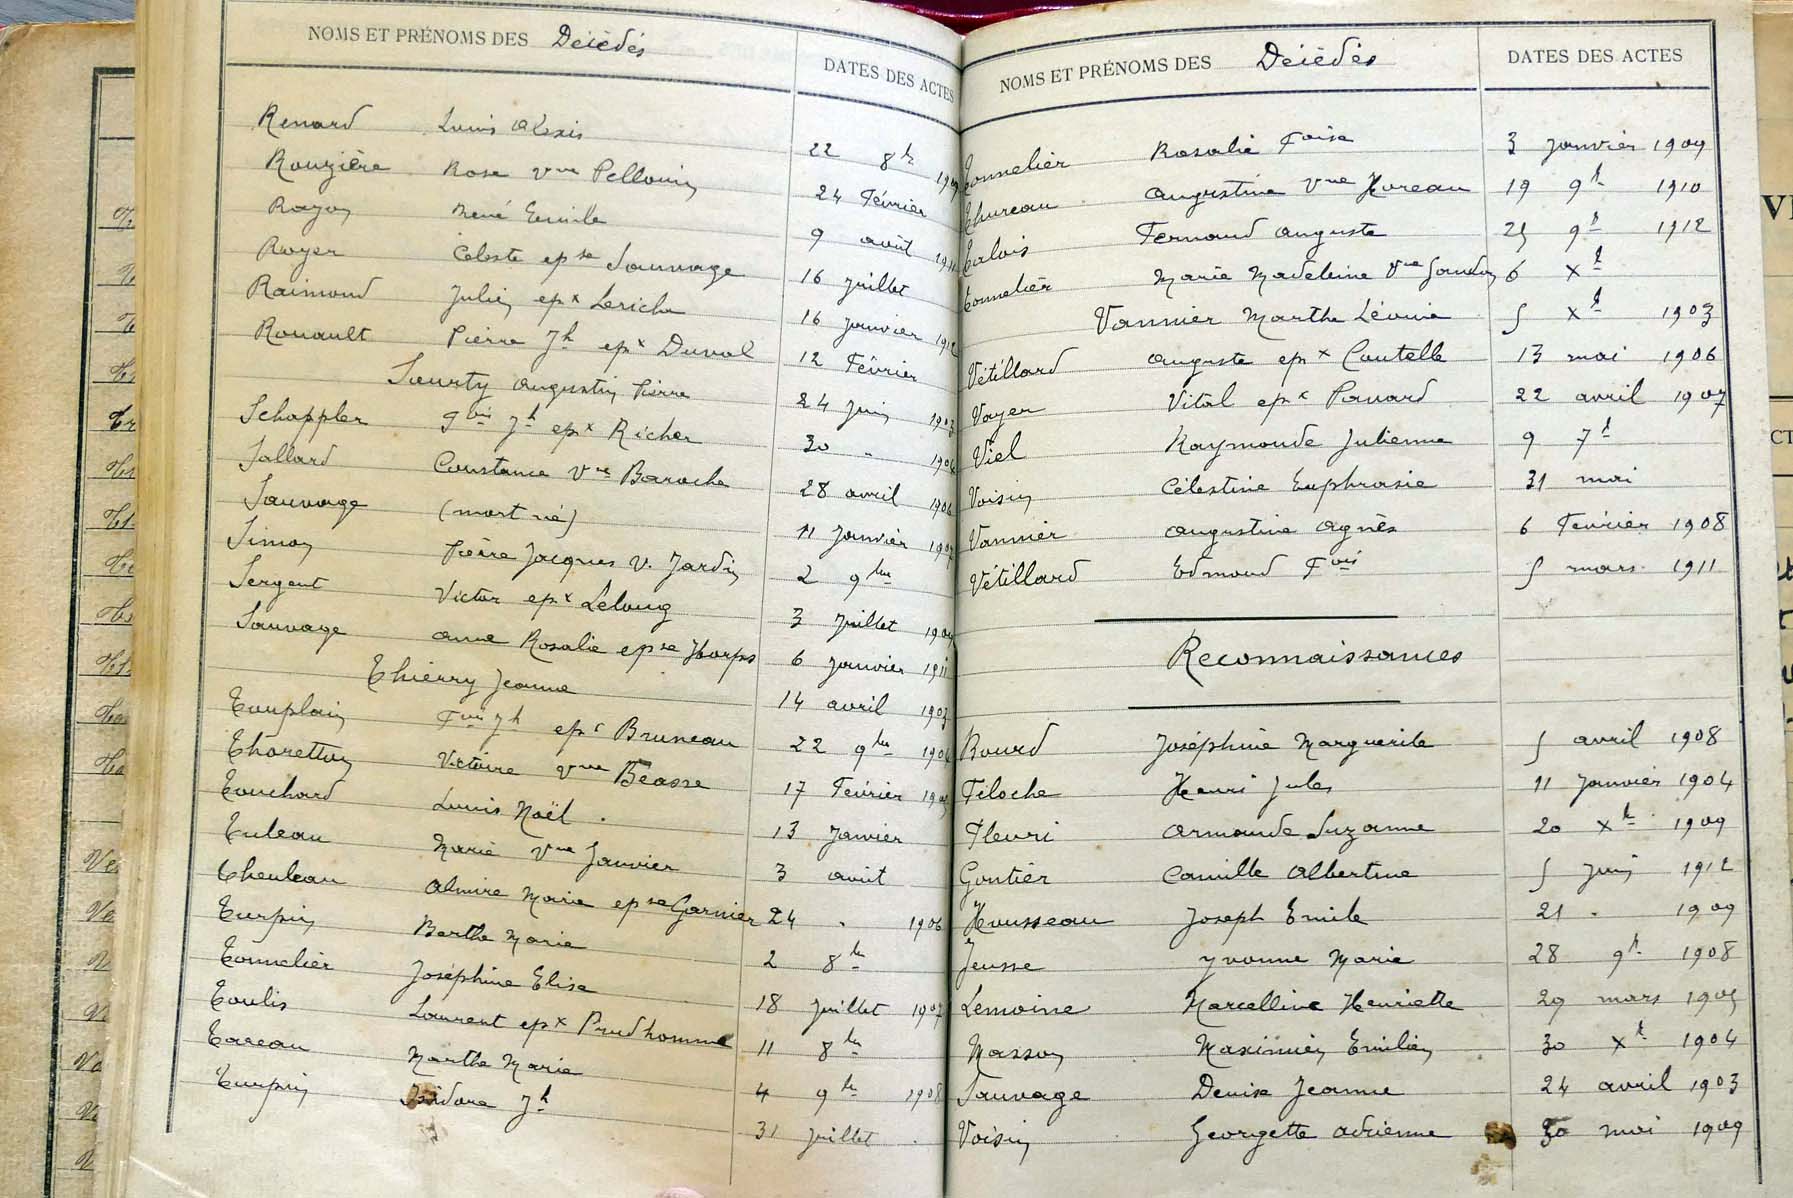 NOMS ET PRÉNOMS DES Décédés DATES DES ACTES
Renard Louis Alexis 22 8bre
Rouzière Rose Vve Pellouin 24 Février
Royer Céleste epse Sauvage 16 Juillet
René Emile 9 août
Raimond Julien epx Leriche 16 Janvier 1912
Rouault Pierre Jh epx Duval 12 Février
Sourty Augustin Pierre 24 Juin 1903
Schappler Jh epx Richer 30 " 1904
Sallard Constance Vve Baroche 28 avril 1906
Sauvage (mort né) 11 Janvier 1907
Simon Pierre Jacques V. Jardin 2 9bre
Sergent Victor epx Lelong 3 Juillet 1909
Sauvage Anne Rosalie epse Harps 6 Janvier 1911
Thierry Jeanne 14 avril 1903
Touplain Fois Jh epx Bruneau 22 9bre 1904
Thoretton Victoire Vve Beasse 17 Février
Touchard Louis Noël 13 Janvier
Tuleau Marie Vve Janvier 3 août
Theuleau Almire Marie epse Garnier 24 " 1906
Turpin Berthe Marie 2 8bre
Tonnelier Joséphine Elise 18 Juillet 1907
Toulis Laurent epx Prudhomme 11 8bre
Tareau Marthe Marie 4 9bre 1908
Turpin Isidore Jh 31 Juillet
NOMS ET PRÉNOMS DES Décédés DATES DES ACTES
Tonnelier Rosalie Foise 3 Janvier 1909
Thureau Augustine Vve Hureau 19 9bre 1910
Talois Fernand Auguste 25 9bre 1912
Tonnelier Marie Madeleine Vve 6 Xbre
Vannier Marthe Lévinie 5 Xbre 1903
Vétillard Auguste epx Coutelle 13 mai 1906
Voyer Vital epx Pavard 22 avril 1907
Viel Raymonde Julienne 9 7bre
Voisin Célestine Euphrasie 31 mai
Vannier Augustine Agnès 6 Février 1908
Vétillard Edmond Fois 5 mars 1911
Reconnaissances
Bourd Joséphine Marguerite 5 avril 1908
Filoche Henri Jules 11 Janvier 1904
Fleuri Armande Suzanne 20 Xbre 1909
Gontier Camille Albertine 5 Juin 1912
Housseau Joseph Emile 21 " 1909
Jeusse Yvonne Marie 28 9bre 1908
Lemoine Marcelline Henriette 29 mars 1905
Masson Maximien Emilien 30 Xbre 1904
Sauvage Denise Jeanne 24 avril 1903
Voisin Georgette Adrienne 30 mai 1909